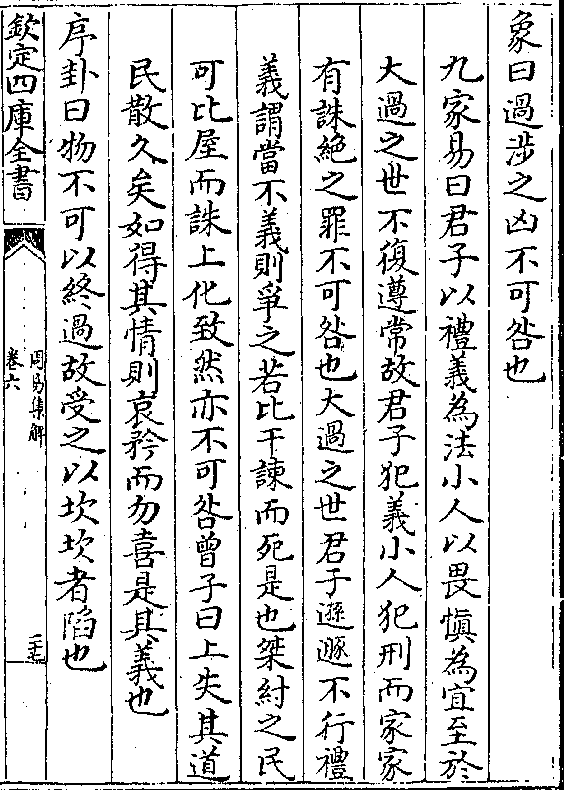 象曰過涉之凶不可咎也
九家易曰君子以禮義為法小人以畏慎為宜至於
大過之世不復遵常故君子犯義小人犯刑而家家
有誅絶之罪不可咎也大過之世君子遜遯不行禮
義謂當不義則爭之若比干諫而死是也桀紂之民
可比屋而誅上化致然亦不可咎曾子曰上失其道
民散久矣如得其情則哀矜而勿喜是其義也
序卦曰物不可以終過故受之以坎坎者陷也
欽定四庫全書
周易集解
卷六